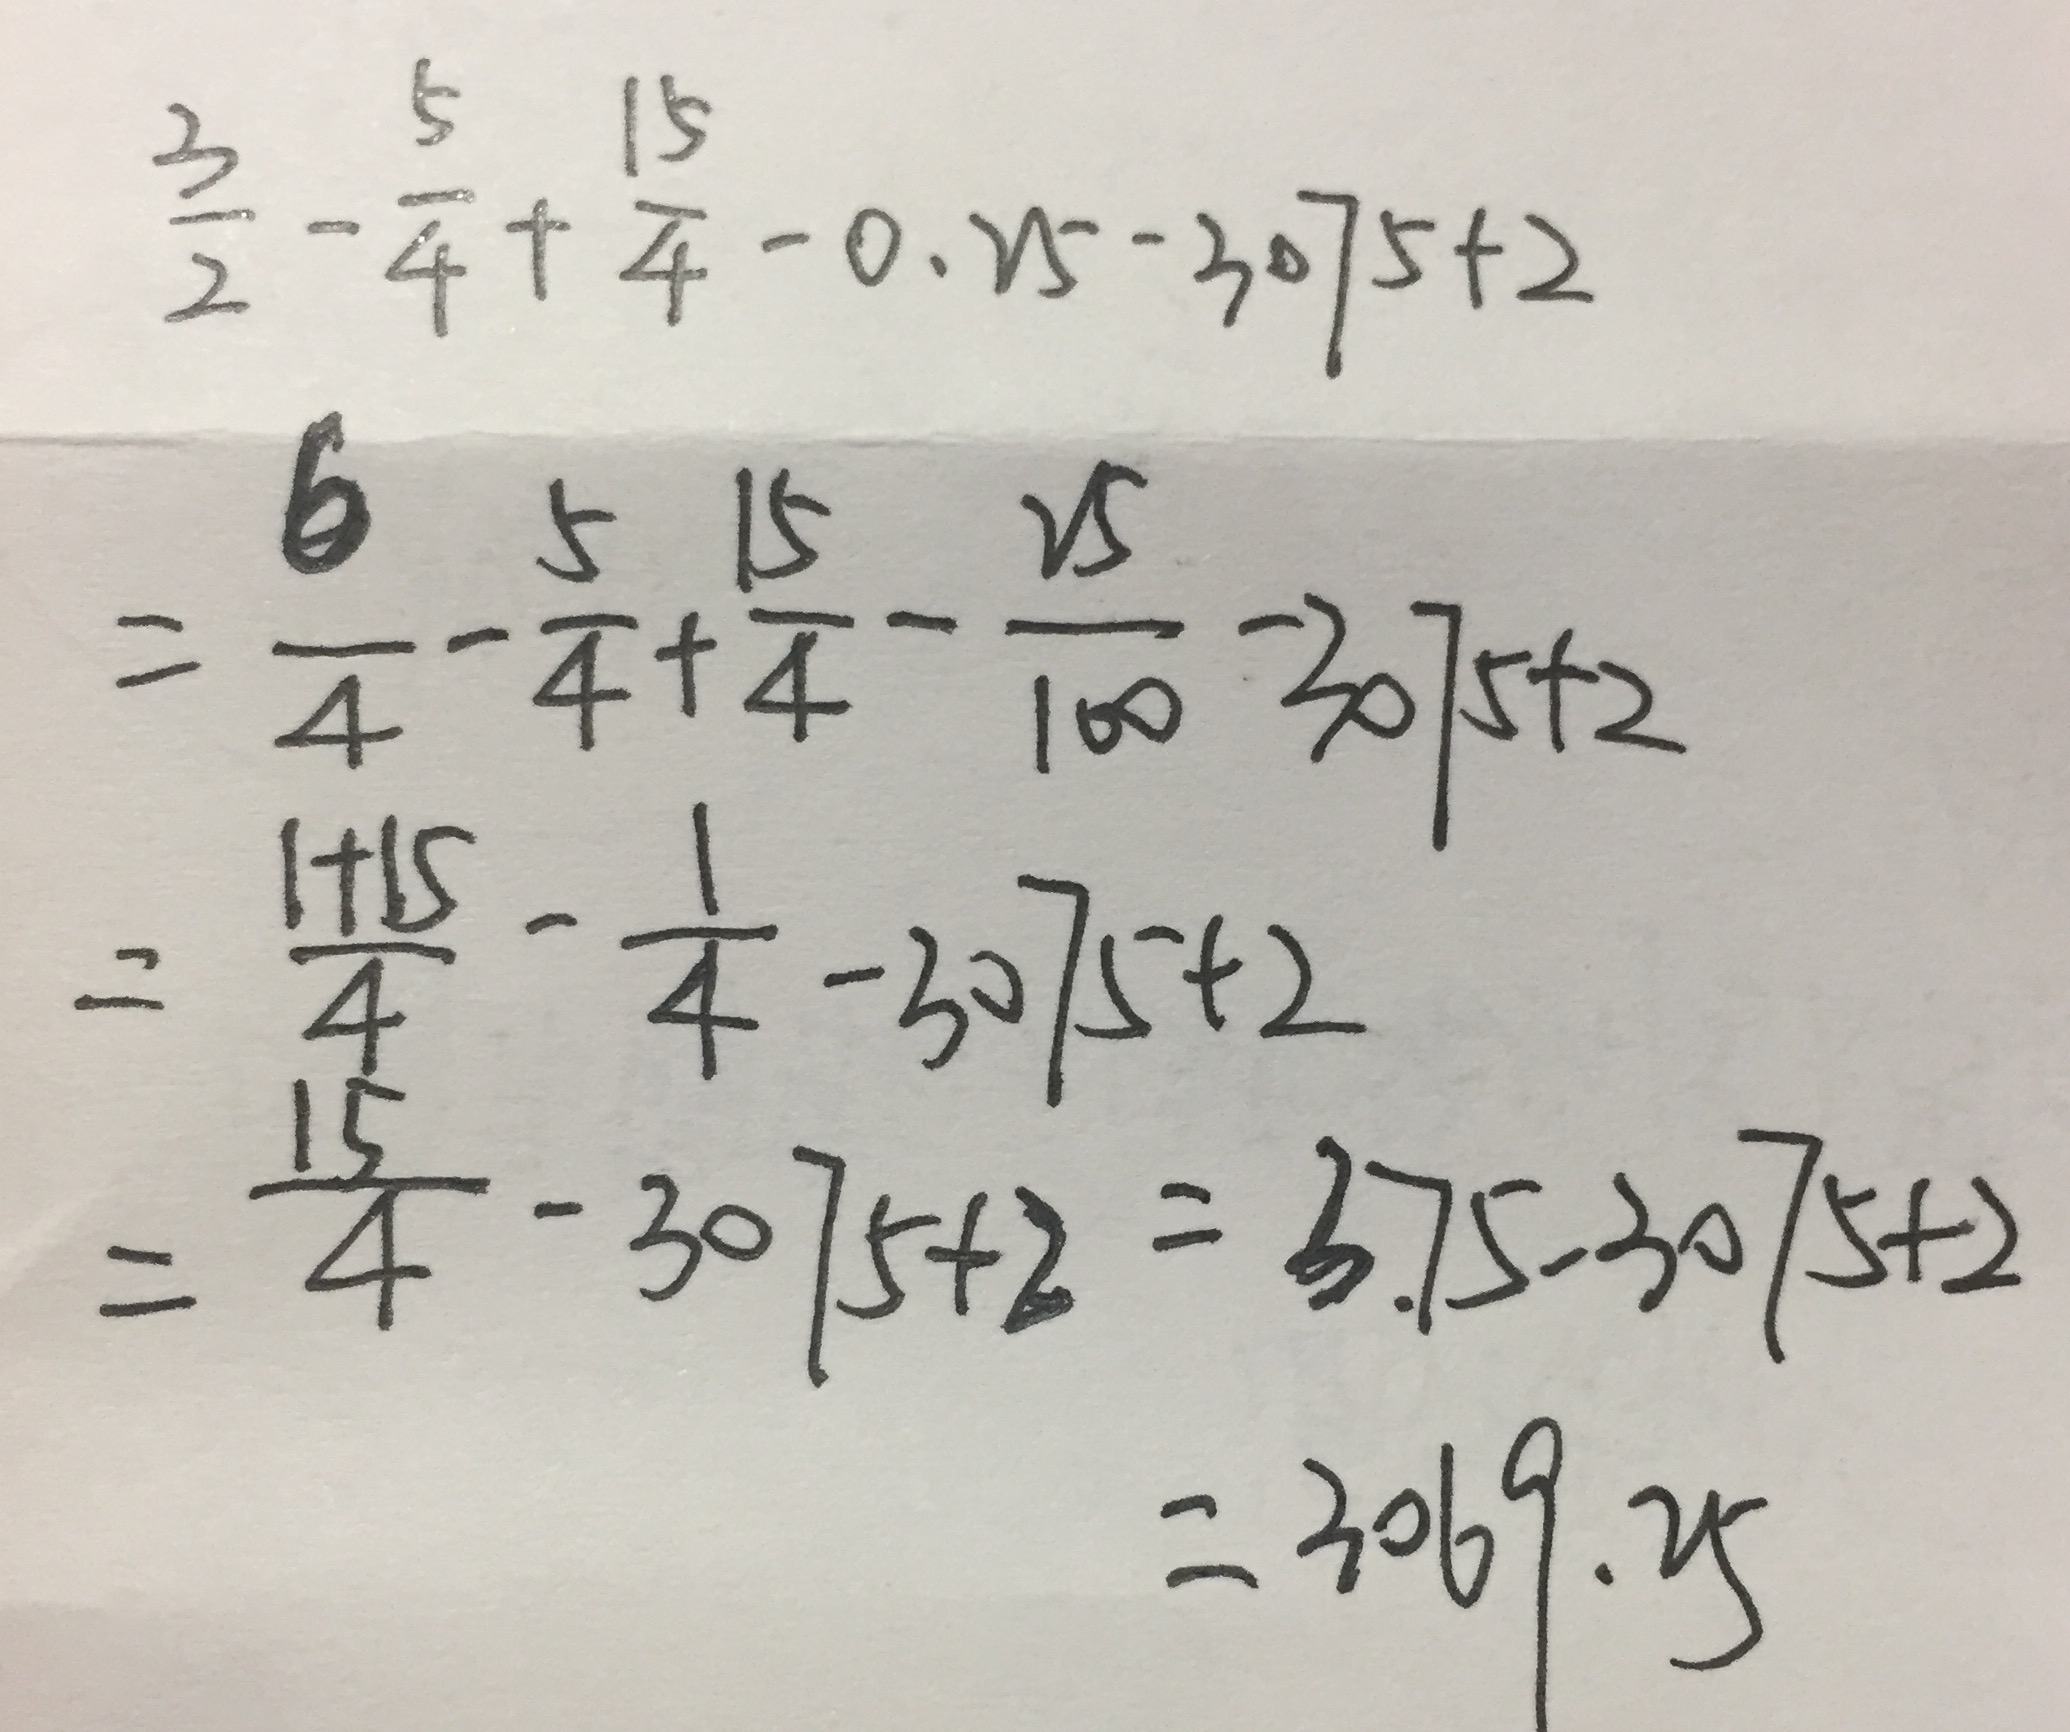 3/2 - 5/4 + 15/4 - 0.25 - 3075 + 2
= 6/4 - 5/4 + 15/4 - 25/100 - 3075 + 2
= (1+15)/4 - 1/4 - 3075 + 2
= 15/4 - 3075 + 2 = 3.75 - 3075 + 2
= 3069.25